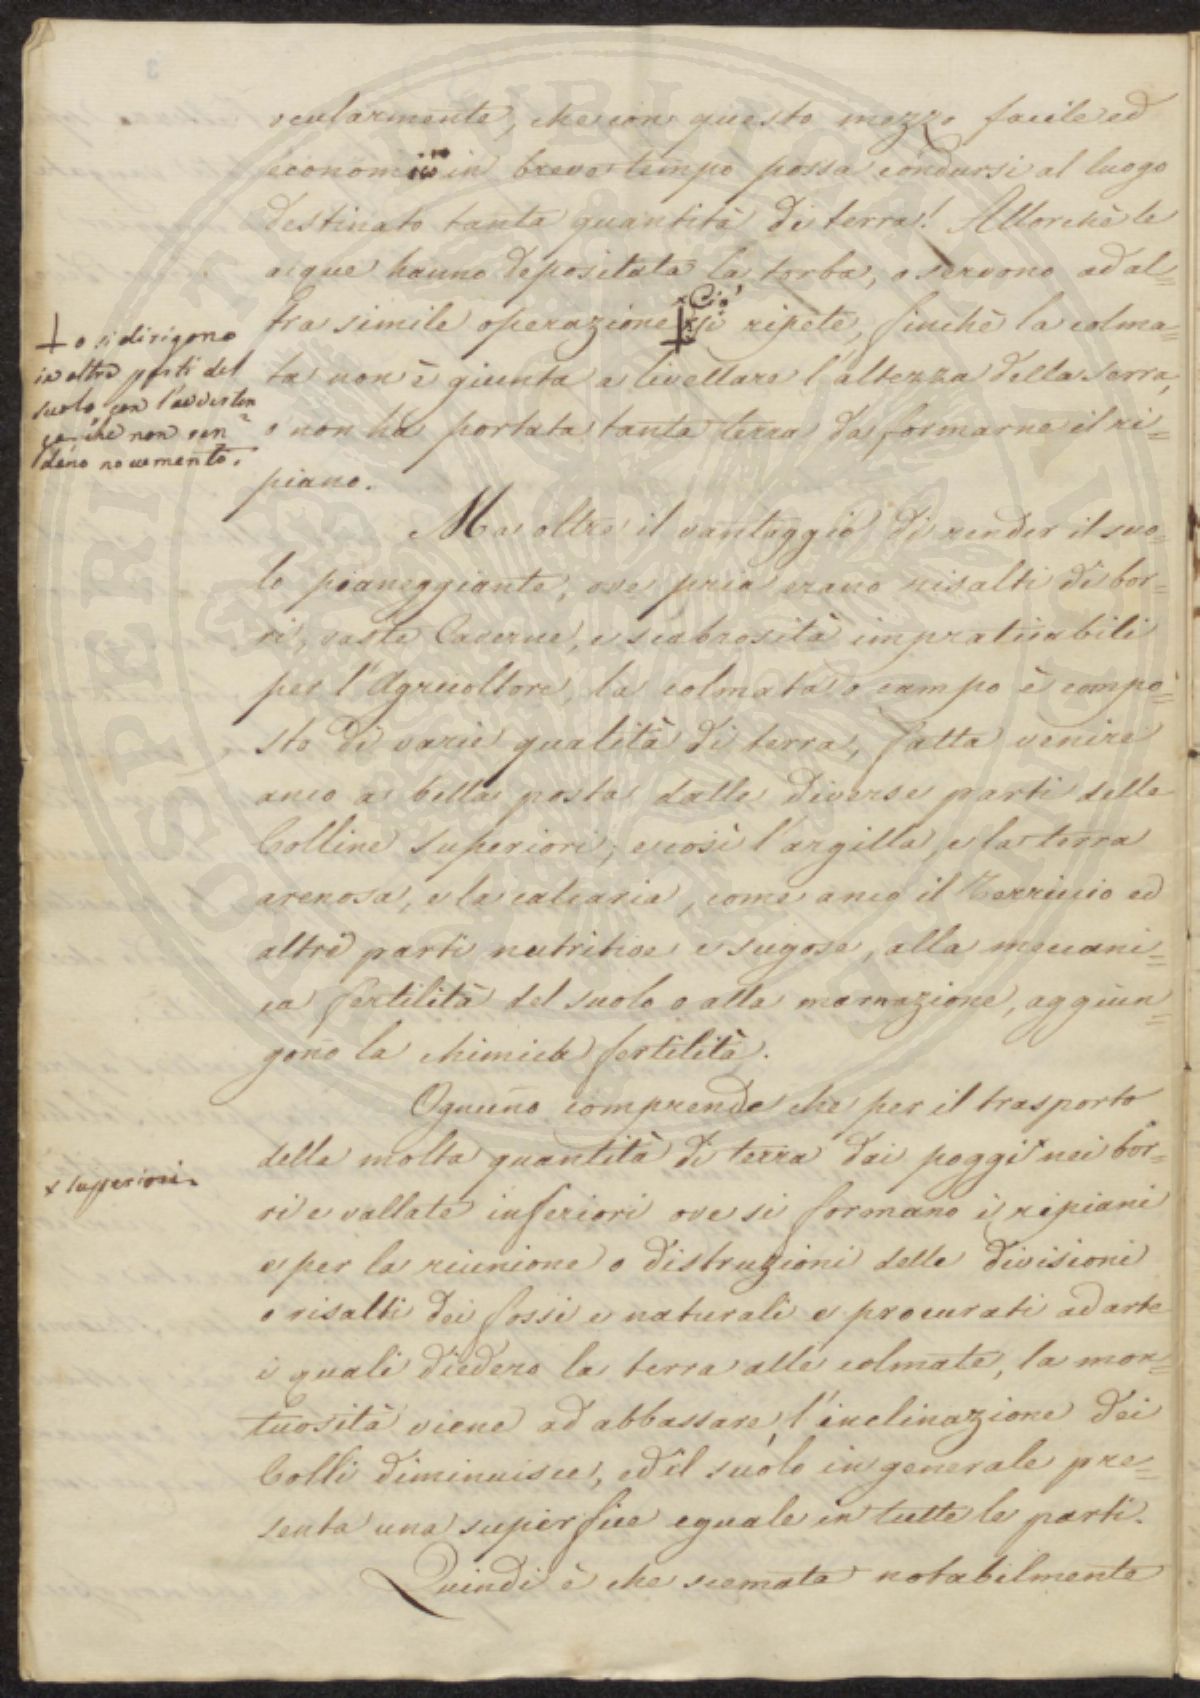 ocularmente, che con questo mezzo facile ed
economico in breve tempo possa condursi al luogo
destinato tanta quantità di terra! Allorchè le
acque hanno depositata la torba, o servono ad al=
tra simile operazione ‡ × Ciò si ripete, finchè la colma=
ta non è giunta a livellare l'altezza della serra,
o non ha portata tanta terra da formarne il ri=
piano.
+ o si dirigono
in altre parti del
suolo con l'avverten
za che non ren=
dano nocumento.
Ma oltre il vantaggio di render il suo=
lo pianeggiante, ove pria erano risalti di bor=
ri, vaste Caverne, e scabrosità impraticabili
per l'Agricoltore, la colmata o campo è compo=
sto di varie qualità di terra, fatta venire
anco a bella posta dalle diverse parti delle
Colline superiori; e così l'argilla, e la terra
arenosa, e la calcaria, come anco il Terriccio ed
altre parti nutritive e sugose, alla meccani=
ca fertilità del suolo o alla marnazione, aggiun=
gono la chimica fertilità.
Ognuno comprende che per il trasporto
della molta quantità di terra dai poggi × nei bor=
ri e vallate inferiori ove si formano i ripiani
× superiori
e per la riunione o distruzioni delle divisioni
o risalti dei fossi e naturali e procurati ad arte
i quali diedero la terra alle colmate, la mon=
tuosità viene ad abbassare, l'inclinazione dei
Colli diminuisce, ed il suolo in generale pre=
senta una superfice eguale in tutte le parti.
Quindi è che scemata notabilmente
SOSPERITÀ PUBBLICA